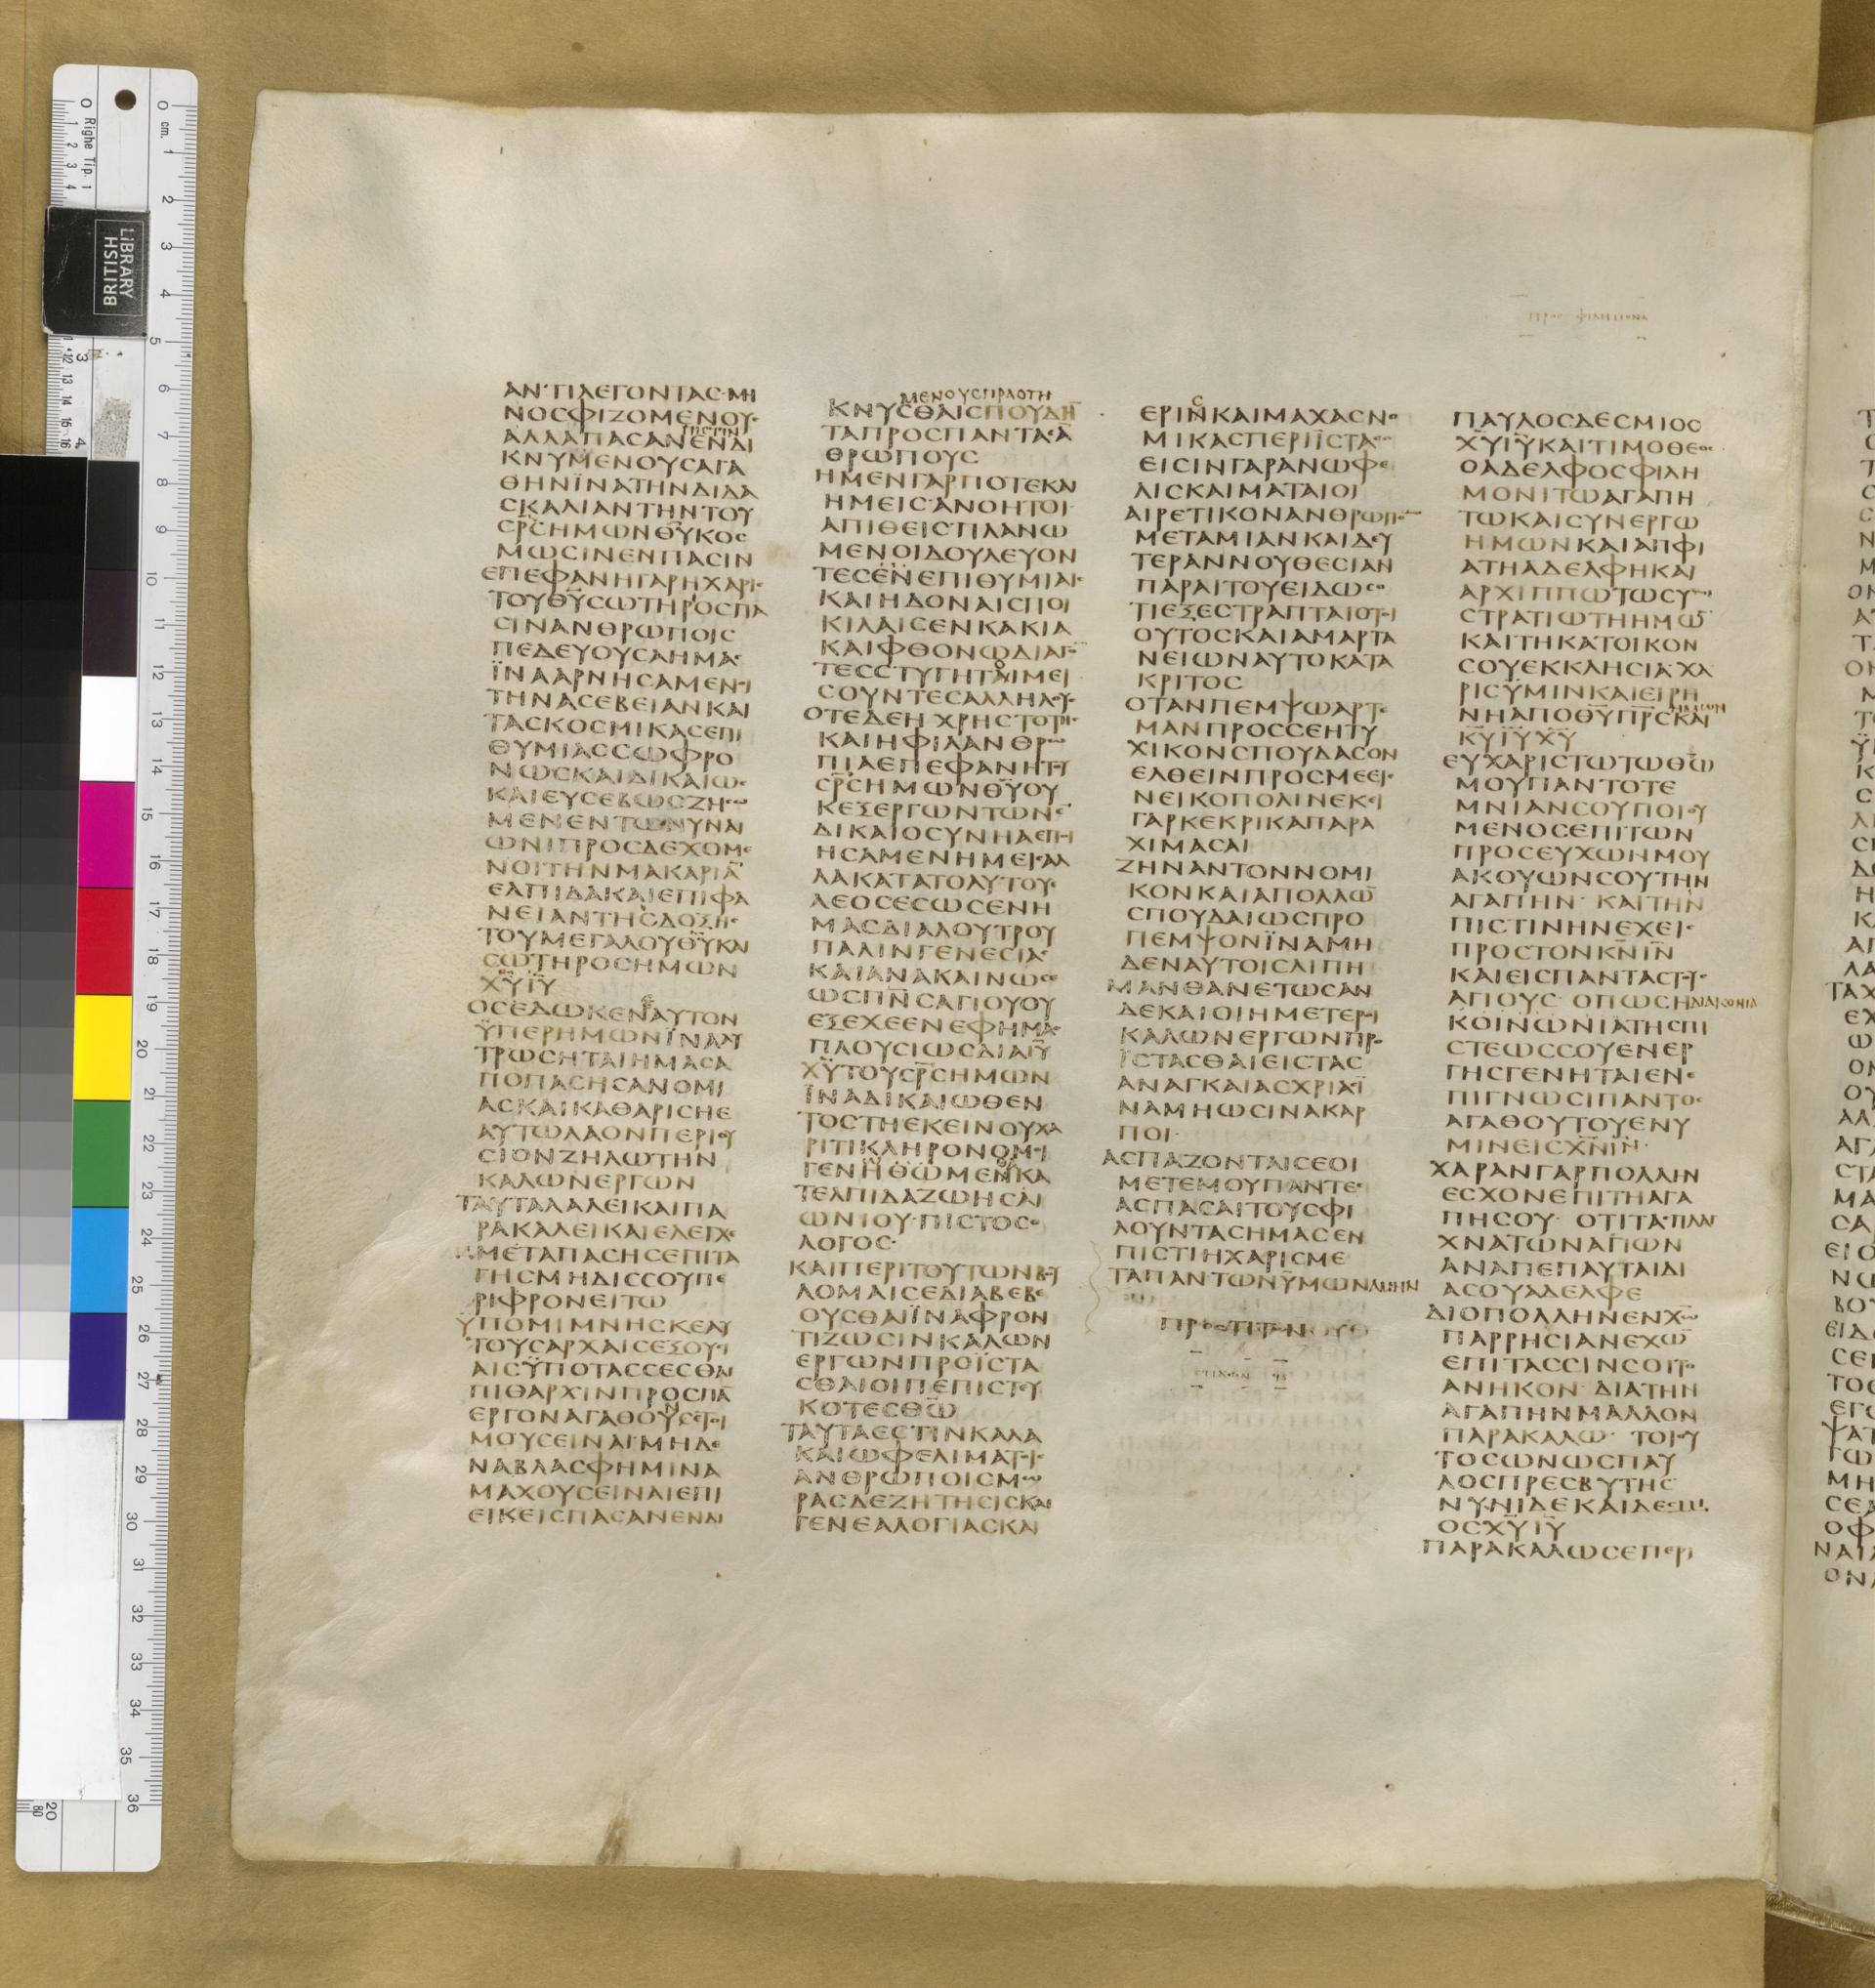 ΑΝΤΙΛΕΓΟΝΤΑΣ ΜΗ
ΝΟΣΦΙΖΟΜΕΝΟΥΣ
ΑΛΛΑΠΑΣΑΝΕΝΔΙ
ΚΝΥΜΕΝΟΥΣΑΓΑ
ΘΗΝΪΝΑΤΗΝΔΙΔΑ
ΣΚΑΛΙΑΝΤΗΝΤΟΥ
ΣΡ̅ΣΗΜΩΝΘ̅Υ̅ΚΟΣ
ΜΩΣΙΝΕΝΠΑΣΙΝ
ΕΠΕΦΑΝΗΓΑΡΗΧΑΡΙΣ
ΤΟΥΘ̅Υ̅ΣΩΤΗΡΟΣΠΑ
ΣΙΝΑΝΘΡΩΠΟΙΣ
ΠΕΔΕΥΟΥΣΑΗΜΑΣ
ΪΝΑΑΡΝΗΣΑΜΕΝΟΙ
ΤΗΝΑΣΕΒΕΙΑΝΚΑΙ
ΤΑΣΚΟΣΜΙΚΑΣΕΠΙ
ΘΥΜΙΑΣΣΩΦΡΟ
ΝΩΣΚΑΙΔΙΚΑΙΩΣ
ΚΑΙΕΥΣΕΒΩΣΖΗΣΩ
ΜΕΝΕΝΤΩΝΥΝΑΙ
ΩΝΙΠΡΟΣΔΕΧΟΜΕ
ΝΟΙΤΗΝΜΑΚΑΡΙΑ̅
ΕΛΠΙΔΑΚΑΙΕΠΙΦΑ
ΝΕΙΑΝΤΗΣΔΟΞΗΣ
ΤΟΥΜΕΓΑΛΟΥΘ̅Υ̅ΚΑΙ
ΣΩΤΗΡΟΣΗΜΩΝ
Χ̅Υ̅Ι̅Υ̅
ΟΣΕΔΩΚΕΝΕΑΥΤΟΝ
ΫΠΕΡΗΜΩΝΪΝΑΛΥ
ΤΡΩΣΗΤΑΙΗΜΑΣΑ
ΠΟΠΑΣΗΣΑΝΟΜΙ
ΑΣΚΑΙΚΑΘΑΡΙΣΗΕ
ΑΥΤΩΛΑΟΝΠΕΡΙΟΥ
ΣΙΟΝΖΗΛΩΤΗΝ
ΚΑΛΩΝΕΡΓΩΝ
ΤΑΥΤΑΛΑΛΕΙΚΑΙΠΑ
ΡΑΚΑΛΕΙΚΑΙΕΛΕΓΧΕ
ΜΕΤΑΠΑΣΗΣΕΠΙΤΑ
ΓΗΣΜΗΔΙΣΣΟΥΠΕ
ΡΙΦΡΟΝΕΙΤΩ
ΫΠΟΜΙΜΝΗΣΚΕΑΥ
ΤΟΥΣΑΡΧΑΙΣΕΞΟΥΣΙ
ΑΙΣΫΠΟΤΑΣΣΕΣΘΑΙ
ΠΙΘΑΡΧΙΝΠΡΟΣΠΑ̅
ΕΡΓΟΝΑΓΑΘΟΝ
ΜΟΥΣΕΙΝΑΙ ΜΗΔΕ
ΝΑΒΛΑΣΦΗΜΙΝΑ
ΜΑΧΟΥΣΕΙΝΑΙΕΠΙ
ΕΙΚΕΙΣΠΑΣΑΝΕΝΔΙ
ΜΕΝΟΥΣΠΡΑΟΤΗ
ΚΝΥΣΘΑΙΣΠΟΥΔΗ̅
ΤΑΠΡΟΣΠΑΝΤΑΣΑ̅
ΘΡΩΠΟΥΣ
ΗΜΕΝΓΑΡΠΟΤΕΚΑΙ
ΗΜΕΙΣΑΝΟΗΤΟΙ
ΑΠΙΘΕΙΣΠΛΑΝΩ
ΜΕΝΟΙΔΟΥΛΕΥΟΝ
ΤΕΣΕΝΕΠΙΘΥΜΙΑΙΣ
ΚΑΙΗΔΟΝΑΙΣΠΟΙ
ΚΙΛΑΙΣΕΝΚΑΚΙΑ
ΚΑΙΦΘΟΝΩΔΙΑΓΟΝ
ΤΕΣΣΤΥΓΗΤΟΙΜΕΙ
ΣΟΥΝΤΕΣΑΛΛΗΛΟΥΣ
ΟΤΕΔΕΗΧΡΗΣΤΟΤΗΣ
ΚΑΙΗΦΙΛΑΝΘΡΩ
ΠΙΑΕΠΕΦΑΝΗΤΟΥ
ΣΡ̅ΣΗΜΩΝΘ̅Υ̅ΟΥ
ΚΕΞΕΡΓΩΝΤΩΝΕ̅
ΔΙΚΑΙΟΣΥΝΗΑΕΠΟΙ
ΗΣΑΜΕΝΗΜΕΙΣΑΛ
ΛΑΚΑΤΑΤΟΑΥΤΟΥ
ΛΕΟΣΕΣΩΣΕΝΗ
ΜΑΣΔΙΑΛΟΥΤΡΟΥ
ΠΑΛΙΝΓΕΝΕΣΙΑΣ
ΚΑΙΑΝΑΚΑΙΝΩΣΕ
ΩΣΠ̅Ν̅ΣΑΓΙΟΥΟΥ
ΕΞΕΧΕΕΝΕΦΗΜΑΣ
ΠΛΟΥΣΙΩΣΔΙΑΙ̅Υ̅
Χ̅Υ̅ΤΟΥΣΡ̅ΣΗΜΩΝ
ΪΝΑΔΙΚΑΙΩΘΕΝ
ΤΟΣΤΗΕΚΕΙΝΟΥΧΑ
ΡΙΤΙΚΛΗΡΟΝΟΜΟΙ
ΓΕΝΗΘΩΜΕΝΚΑ
ΤΕΛΠΙΔΑΖΩΗΣΑΙ
ΩΝΙΟΥ ΠΙΣΤΟΣΟ
ΛΟΓΟΣ
ΚΑΙΠΕΡΙΤΟΥΤΩΝΒΟΥ
ΛΟΜΑΙΣΕΔΙΑΒΕΒΕ
ΟΥΣΘΑΙΪΝΑΦΡΟΝ
ΤΙΖΩΣΙΝΚΑΛΩΝ
ΕΡΓΩΝΠΡΟΪΣΤΑ
ΣΘΑΙΟΙΠΕΠΙΣΤΕΥ
ΚΟΤΕΣΘ̅Ω̅
ΤΑΥΤΑΕΣΤΙΝΚΑΛΑ
ΚΑΙΩΦΕΛΙΜΑΤΟΙΣ
ΑΝΘΡΩΠΟΙΣΜΩ
ΡΑΣΔΕΖΗΤΗΣΙΣΚΑΙ
ΓΕΝΕΑΛΟΓΙΑΣΚΑΙ
ΕΡΙΝΚΑΙΜΑΧΑΣΝΟ
ΜΙΚΑΣΠΕΡΙΪΣΤΑΣΟ
ΕΙΣΙΝΓΑΡΑΝΩΦΕ
ΛΙΣΚΑΙΜΑΤΑΙΟΙ
ΑΙΡΕΤΙΚΟΝΑΝΘΡΩΠΟΝ
ΜΕΤΑΜΙΑΝΚΑΙΔΕΥ
ΤΕΡΑΝΝΟΥΘΕΣΙΑΝ
ΠΑΡΑΙΤΟΥΕΙΔΩΣΟ
ΤΙΕΞΕΣΤΡΑΠΤΑΙΟΤΟΙ
ΟΥΤΟΣΚΑΙΑΜΑΡΤΑ
ΝΕΙΩΝΑΥΤΟΚΑΤΑ
ΚΡΙΤΟΣ
ΟΤΑΝΠΕΜΨΩΑΡΤΕ
ΜΑΝΠΡΟΣΣΕΗΤΥ
ΧΙΚΟΝΣΠΟΥΔΑΣΟΝ
ΕΛΘΕΙΝΠΡΟΣΜΕΕΙΣ
ΝΕΙΚΟΠΟΛΙΝΕΚΕΙ
ΓΑΡΚΕΚΡΙΚΑΠΑΡΑ
ΧΙΜΑΣΑΙ
ΖΗΝΑΝΤΟΝΝΟΜΙ
ΚΟΝΚΑΙΑΠΟΛΛΩ̅
ΣΠΟΥΔΑΙΩΣΠΡΟ
ΠΕΜΨΟΝΪΝΑΜΗ
ΔΕΝΑΥΤΟΙΣΛΙΠΗ
ΜΑΝΘΑΝΕΤΩΣΑΝ
ΔΕΚΑΙΟΙΗΜΕΤΕΡΟΙ
ΚΑΛΩΝΕΡΓΩΝΠΡΟ
ΪΣΤΑΣΘΑΙΕΙΣΤΑΣ
ΑΝΑΓΚΑΙΑΣΧΡΙΑΣΪ
ΝΑΜΗΩΣΙΝΑΚΑΡ
ΠΟΙ
ΑΣΠΑΖΟΝΤΑΙΣΕΟΙ
ΜΕΤΕΜΟΥΠΑΝΤΕΣ
ΑΣΠΑΣΑΙΤΟΥΣΦΙ
ΛΟΥΝΤΑΣΗΜΑΣΕΝ
ΠΙΣΤΙΗΧΑΡΙΣΜΕ
ΤΑΠΑΝΤΩΝΫΜΩΝΑΜΗΝ
ΠΡΟΣΤΙΤΟΝ
ΣΤΙΧΩΝ
ΠΡΟΣ ΦΙΛΗΜΟΝΑ
ΠΑΥΛΟΣΔΕΣΜΙΟΣ
Χ̅Υ̅Ι̅Υ̅ΚΑΙΤΙΜΟΘΕΟΣ
ΟΑΔΕΛΦΟΣΦΙΛΗ
ΜΟΝΙΤΩΑΓΑΠΗ
ΤΩΚΑΙΣΥΝΕΡΓΩ
ΗΜΩΝΚΑΙΑΠΦΙ
ΑΤΗΑΔΕΛΦΗΚΑΙ
ΑΡΧΙΠΠΩΤΩΣΥ
ΣΤΡΑΤΙΩΤΗΗΜΩ̅
ΚΑΙΤΗΚΑΤΟΙΚΟΝ
ΣΟΥΕΚΚΛΗΣΙΑΧΑ
ΡΙΣΫΜΙΝΚΑΙΕΙΡΗ
ΝΗΑΠΟΘ̅Υ̅Π̅Ρ̅ΣΚΑΙ
Κ̅Υ̅Ι̅Υ̅Χ̅Υ̅
ΕΥΧΑΡΙΣΤΩΤΩΘ̅Ω̅
ΜΟΥΠΑΝΤΟΤΕ
ΜΝΙΑΝΣΟΥΠΟΙΟΥ
ΜΕΝΟΣΕΠΙΤΩΝ
ΠΡΟΣΕΥΧΩΝΜΟΥ
ΑΚΟΥΩΝΣΟΥΤΗΝ
ΑΓΑΠΗΝ ΚΑΙΤΗΝ
ΠΙΣΤΙΝΗΝΕΧΕΙΣ
ΠΡΟΣΤΟΝΚ̅Ν̅Ι̅Ν̅
ΚΑΙΕΙΣΠΑΝΤΑΣΤΟΥΣ
ΑΓΙΟΥΣ ΟΠΩΣΗΔΙΑΚΟΝΙΑ
ΚΟΙΝΩΝΙΑΤΗΣΠΙ
ΣΤΕΩΣΣΟΥΕΝΕΡ
ΓΗΣΓΕΝΗΤΑΙΕΝΕ
ΠΙΓΝΩΣΙΠΑΝΤΟΣ
ΑΓΑΘΟΥΤΟΥΕΝΥ
ΜΙΝΕΙΣΧ̅Ν̅Ι̅Ν̅
ΧΑΡΑΝΓΑΡΠΟΛΛΗΝ
ΕΣΧΟΝΕΠΙΤΗΑΓΑ
ΠΗΣΟΥ ΟΤΙΤΑΣΠΛΑΓ
ΧΝΑΤΩΝΑΓΙΩΝ
ΑΝΑΠΕΠΑΥΤΑΙΔΙ
ΑΣΟΥΑΔΕΛΦΕ
ΔΙΟΠΟΛΛΗΝΕΝΧ̅Ω̅
ΠΑΡΡΗΣΙΑΝΕΧΩ̅
ΕΠΙΤΑΣΣΙΝΣΟΙΤΟ
ΑΝΗΚΟΝ ΔΙΑΤΗΝ
ΑΓΑΠΗΝΜΑΛΛΟΝ
ΠΑΡΑΚΑΛΩ ΤΟΙΟΥ
ΤΟΣΩΝΩΣΠΑΥ
ΛΟΣΠΡΕΣΒΥΤΗΣ
ΝΥΝΙΔΕΚΑΙΔΕΣΜΙ
ΟΣΧ̅Υ̅Ι̅Υ̅
ΠΑΡΑΚΑΛΩΣΕΠΕΡΙ